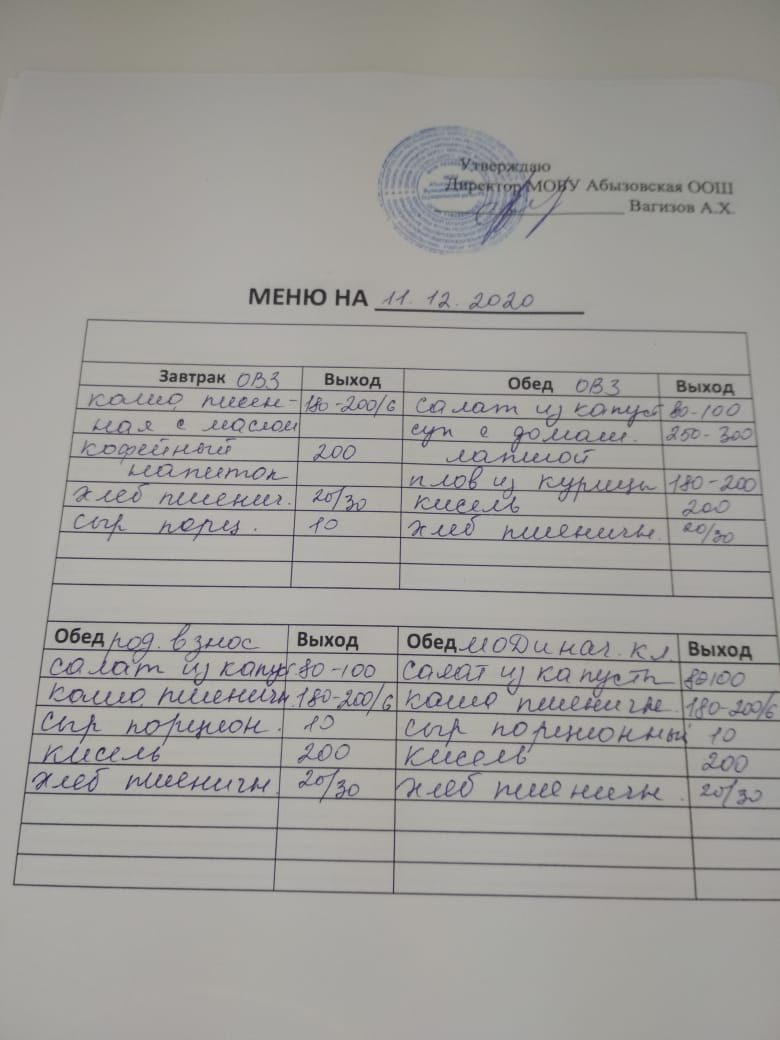 Утверждаю
Директор МОБУ Абызовская ООШ
Вагизов А.Х.
МЕНЮ НА 11.12.2020
Завтрак ОВЗ Выход Обед ОВЗ Выход
каша пшен- 180-200/6 салат из капуст 80-100
ная с маслом суп с домаш. 250-300
кофейный 200 лапшой
напиток плов из курицы 180-200
хлеб пшенич. 20/30 кисель 200
сыр порц. 10 хлеб пшеничн. 20/30
Обед род. взнос Выход Обед МОДинач. кл. Выход
салат из капус 80-100 салат из капусты 80100
каша пшеничн. 180-200/6 каша пшеничн. 180-200/6
сыр порцион. 10 сыр порционный 10
кисель 200 кисель 200
хлеб пшеничн. 20/30 хлеб пшеничн. 20/30